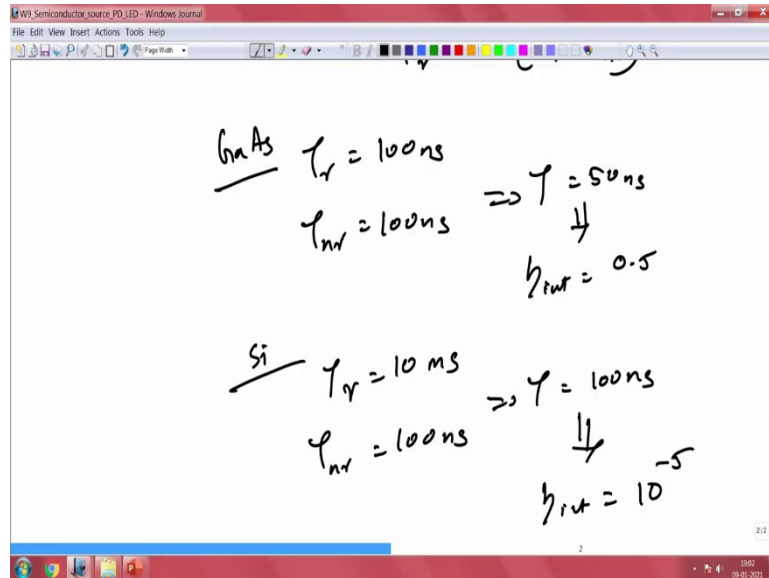 W9_Semiconductor_source_PD_LED - Windows Journal
File Edit View Insert Actions Tools Help
Page Width
B I
GaAs τr = 100ns
τnr = 100ns => τ = 50ns
ηint = 0.5
Si τr = 10 ms
τnr = 100ns => τ = 100ns
ηint = 10^-5
2/2
2
19:02
09-01-2021